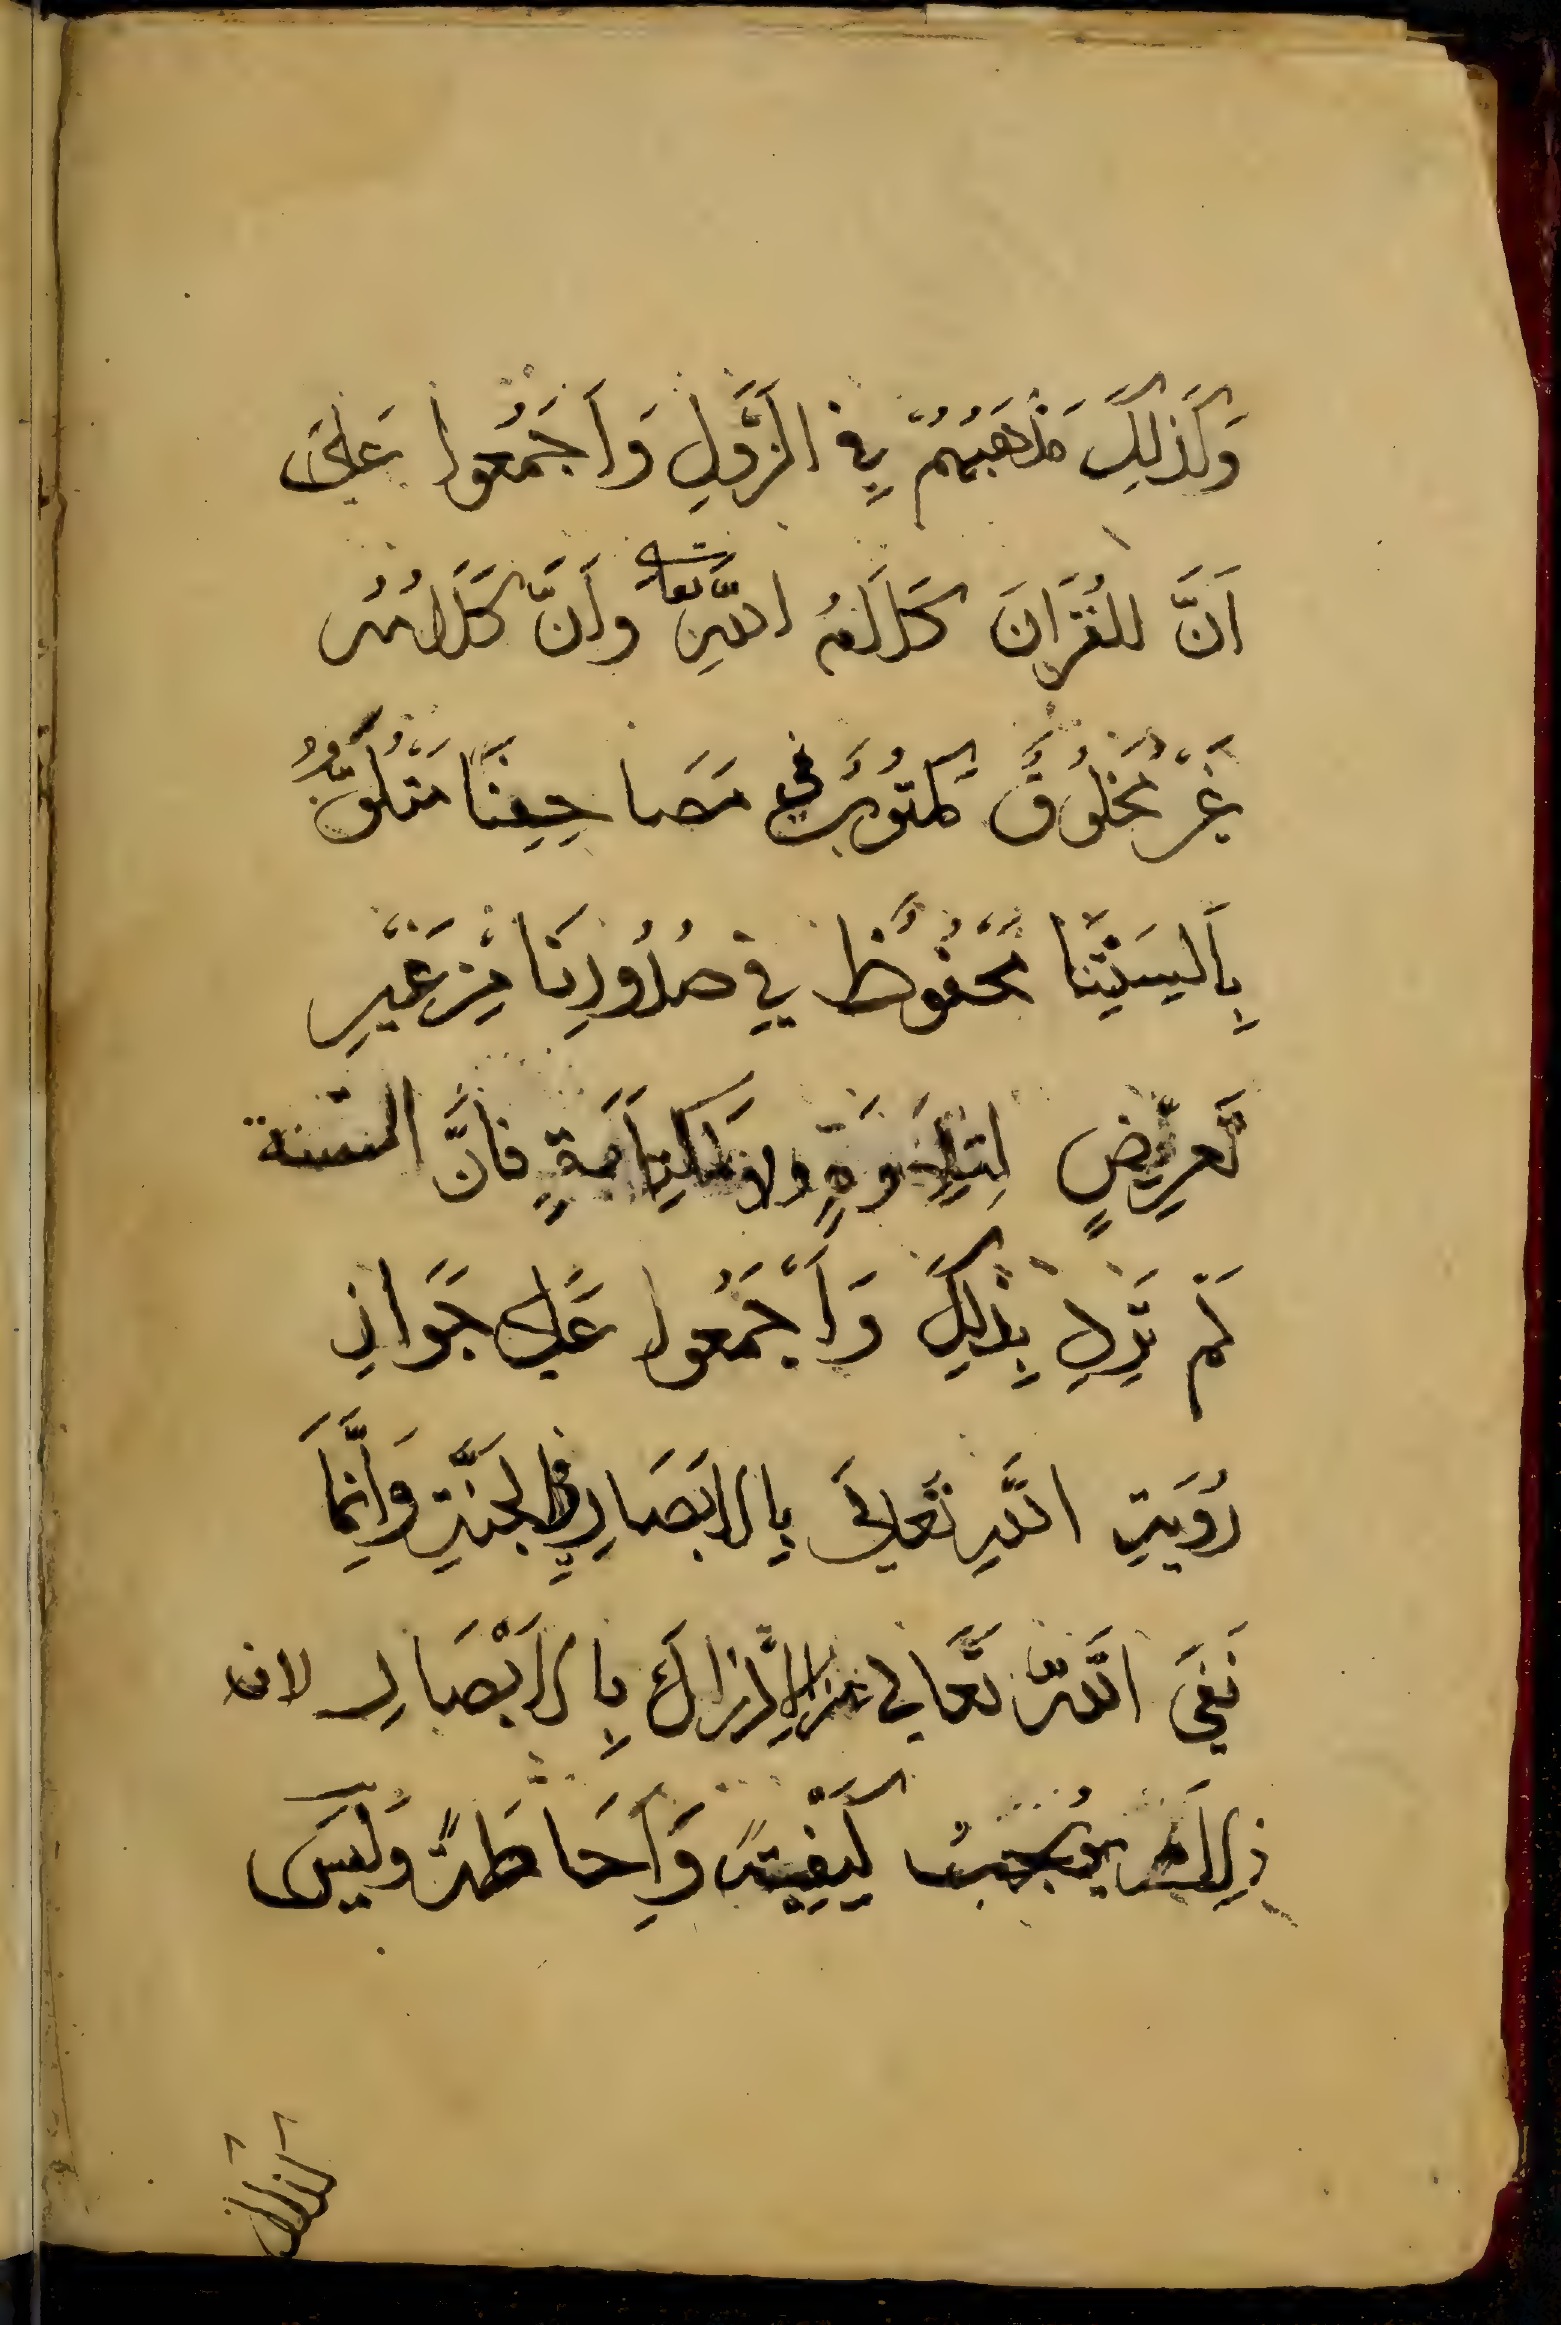 وَكَذٰلِكَ مَذْهَبُهُمْ فِي النُّزُولِ وَاَجْمَعُوا عَلىَ
اَنَّ القُرْآنَ كَلَامُ اللّٰهِ تعالى وَاَنَّ كَلَامَهُ
غَيْرُ مَخْلُوقٍ مَكْتُوبٌ في مَصَاحِفِنَا مَتْلُوٌّ
بِاَلسِنَتِنَا مَحْفُوظٌ فِي صُدُورِنَا مِنْ غَيْرِ
تَعرِيضٍ لِتِلَاوَةٍ ولا لكتابةٍ فانَّ السنة
لَمْ تَرِد بِذٰلِكَ وَاَجْمَعُوا عَلى جَوَازِ
رُؤيَةِ اللّٰهِ تَعَالىَ بِالاَبصَارِ في الجَنَّةِ وَاِنَّمَا
نَفَى اللّٰهُ تَعَالى عن الاِدْرَاكَ بِالاَبْصَارِ لان
ذٰلِكَ يُوجبُ كَيْفِيَّةً وَاِحَاطَةً وَلَيسَ
كذلك